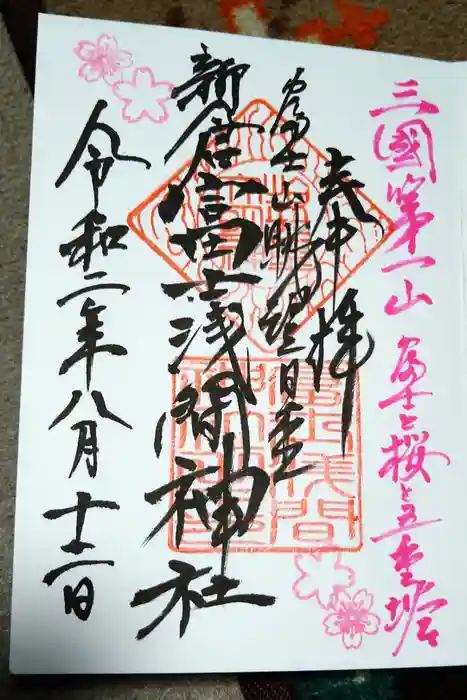 三國第一山 富士と桜と五重塔
奉拝
富士山眺望
新倉富士浅間神社
令和二年八月十二日